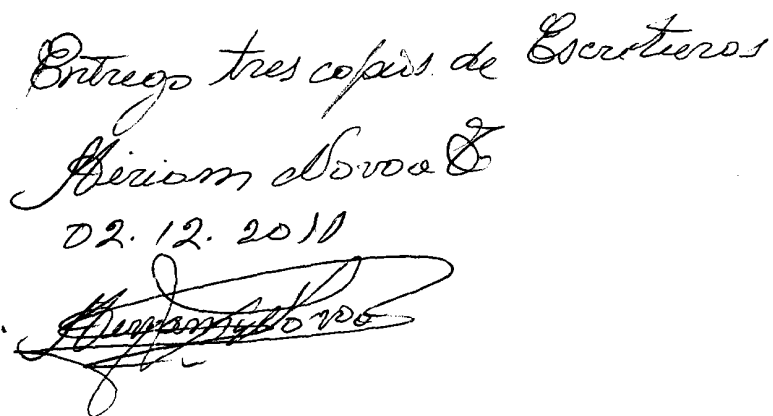 Entrego tres copias de Escrituras
Miriam Novoa E
02.12.2010
Miriam Novoa